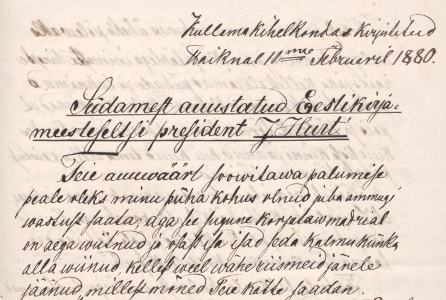 Kullema Kihelkondas Kirjutetud
Kaiknal 11me Februaril 1880.
Südamest auustatud Eestikirja-
meesteseltsi president J Hurt!
Teie auuwäärt soowitawa palumise
peale oleks minu püha kohus olnud juba ammugi
wastust saata; aga see sugune korjataw matrial
on aega wiitnud ja osast isa isad seda Kalmu Künka
alla wiinud, kellest weel wähe riismeid järele
jäänud millest mõned Teie kätte saadan.